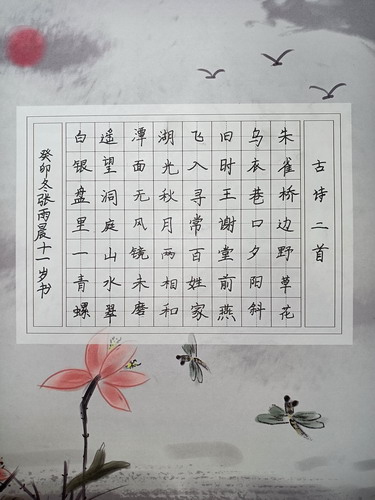 古诗二首
朱雀桥边野草花
乌衣巷口夕阳斜
旧时王谢堂前燕
飞入寻常百姓家
湖光秋月两相和
潭面无风镜未磨
遥望洞庭山水翠
白银盘里一青螺
癸卯冬张雨晨十一岁书